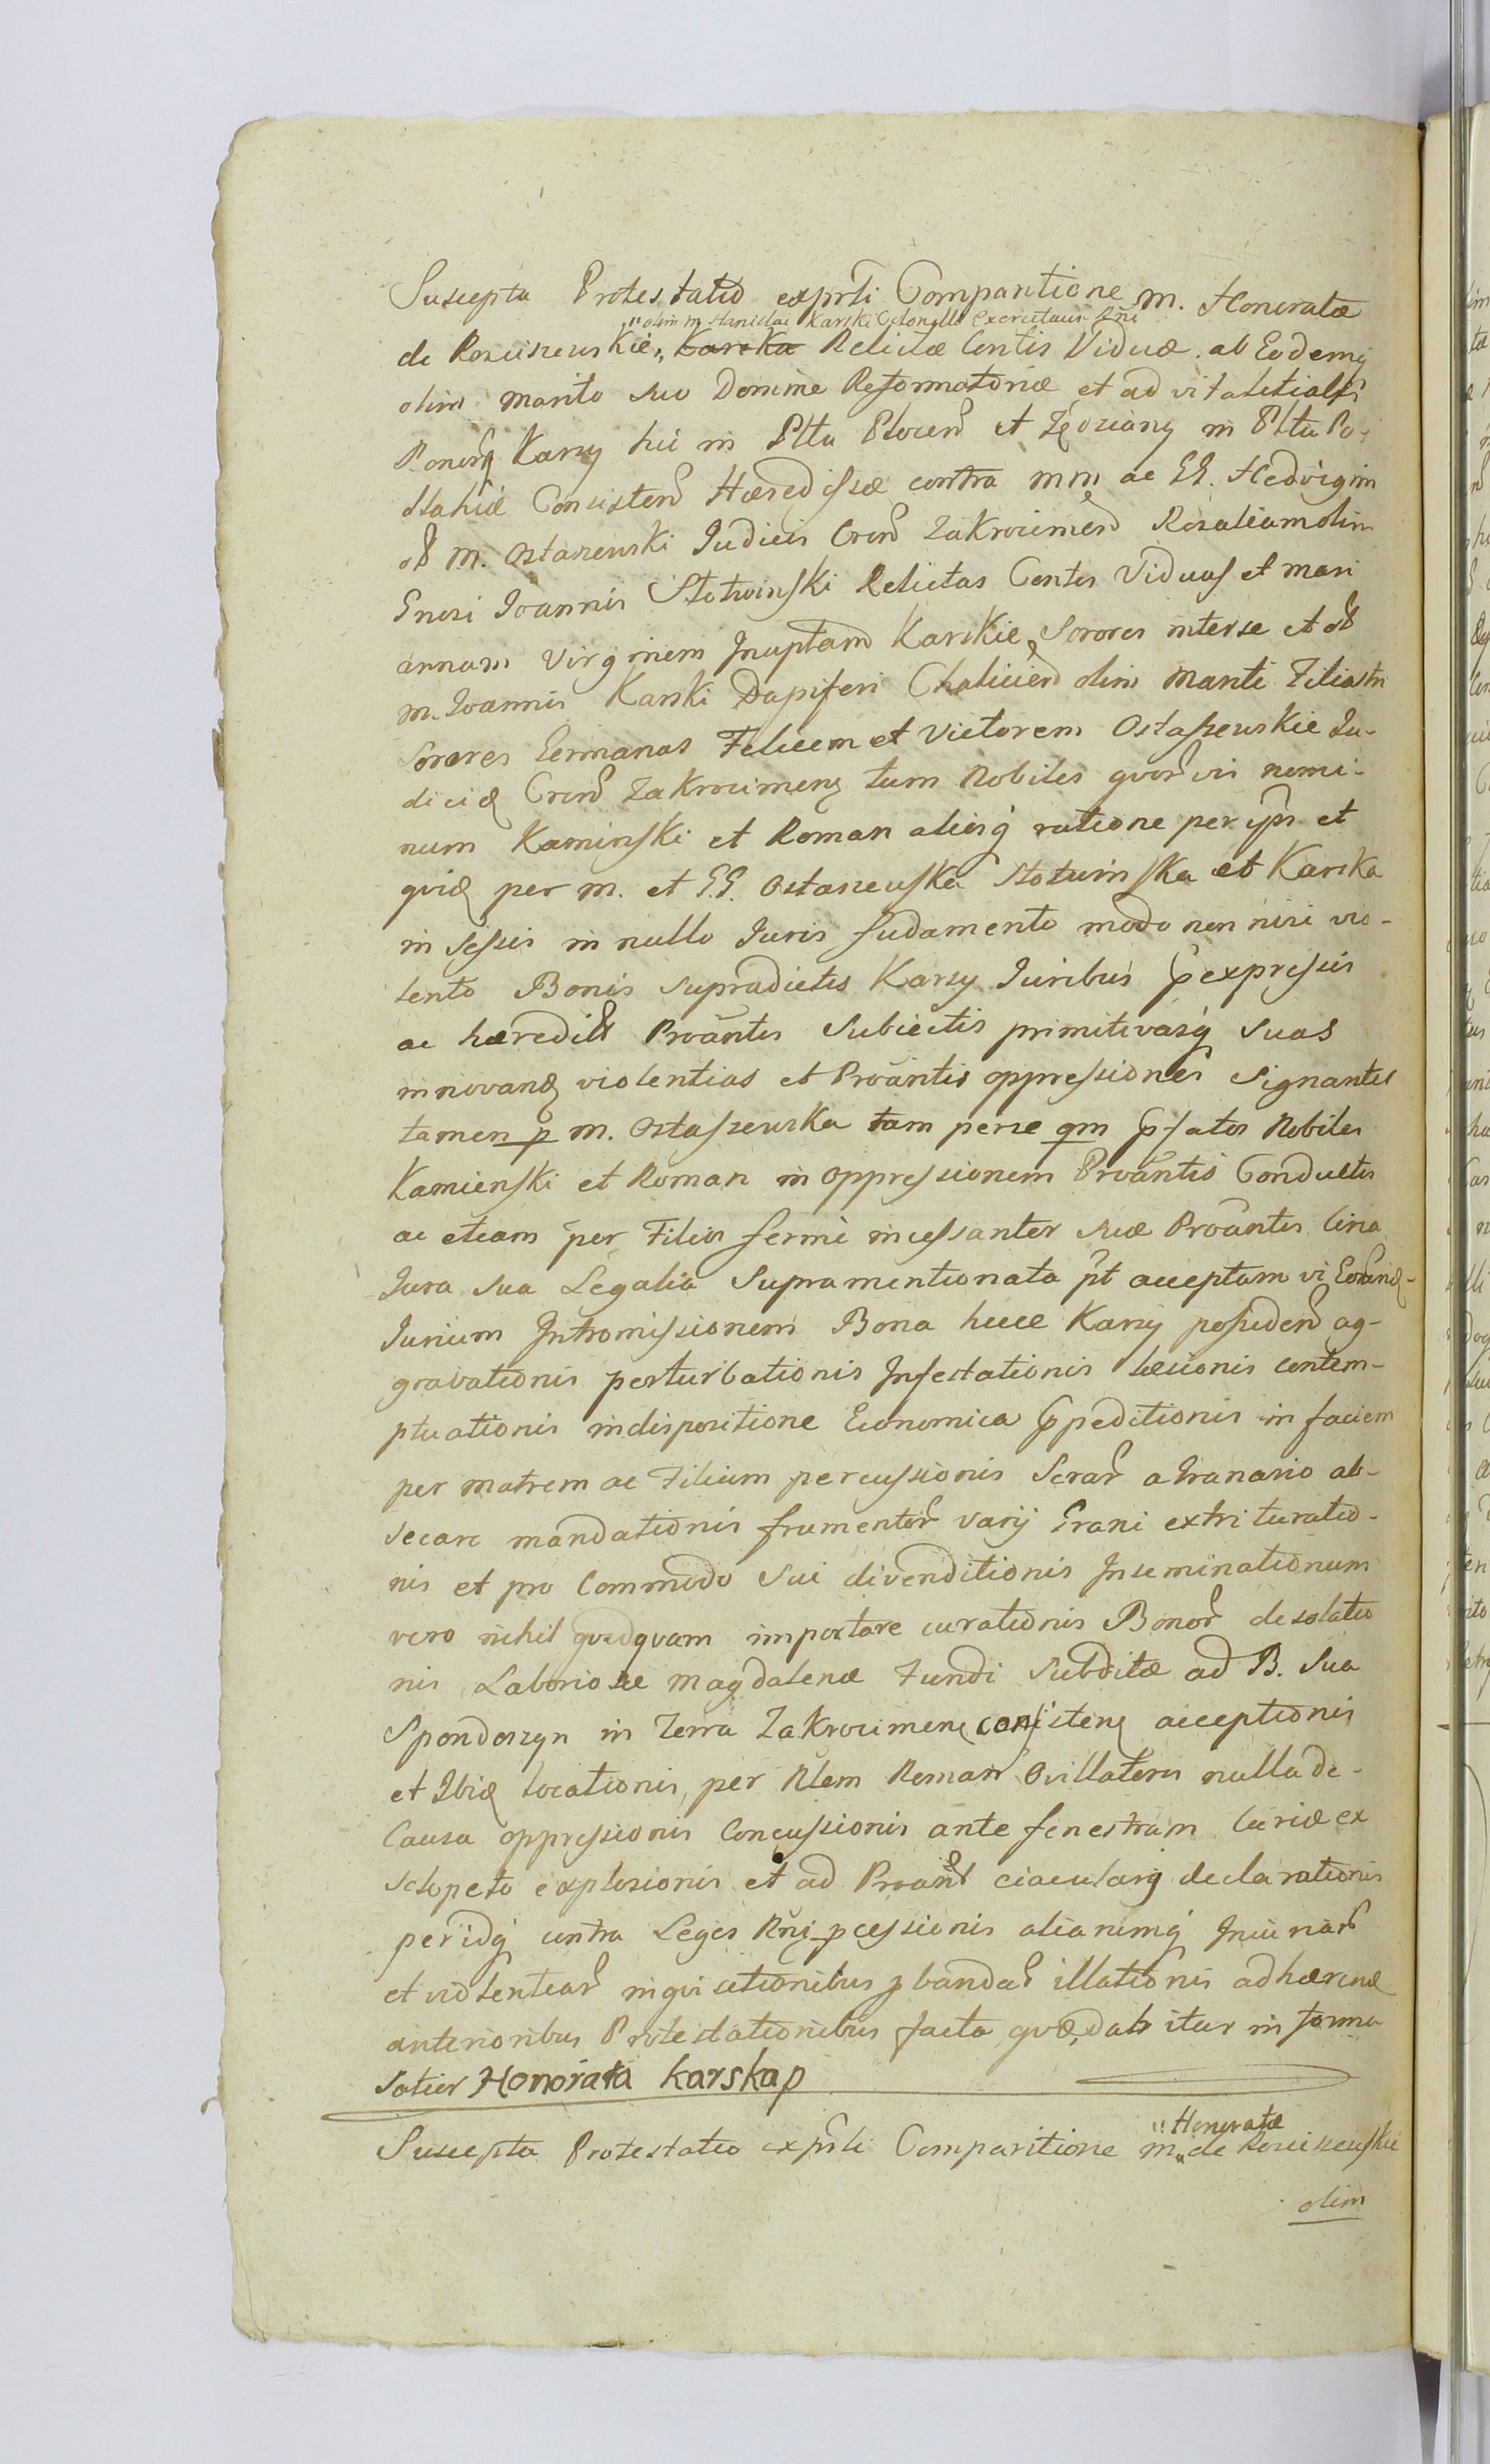 Suscepta Protestatio exprsti Comparitione M. Honoratæ
"olim M. Stanislai Karski Colonello Exercituum Rni
de Rosciszewskie „ Karska Relictæ Contis Viduæ ab Eodemq
olim marito suo Domine Reformatoriæ et ad vitalitialis
Bonorq Karsy hic in Pltu Plocen et Zędziany in Pltu Po-
stahiæ Consisten Hæredissæ contra MM ac GG. Hedvigim
olr M. Ostaszewski Iudicis Cren Zakrocimen Rosaliam olim
Gnosi Ioannis Stotwinski Relictas Contes Viduas et Mari
annam Virginem Inuptam Karskie Sorores interse et olr
M. Ioannis Karski Dapiferi Chalicien olim Mariti Filiastri
Sorores Germanas Felicem et Victorem Ostaszewskie Iu-
dicid Cren Zakrocimenq tum Nobiles quorvis nomi-
num Kaminski et Roman aliosq ratione per ipsos et
quid per M. et GG. Ostaszewska Stotwinska et Karska
in sessis in nullo Iuris fudamento modo non nisi vio-
lento Bonis supradictis Karsy Iuribus pexpressis
ac hæredibt Proãntis Subiectis primitivasq suas
innovand violentias et Proãntis oppressiones Signantes
tamen p M. Ostaszewska tam perse qm pfatos Nobiles
Kamienski et Roman in oppressionem Proãntis Conductis
ac etiam per Filios fermè incessanter suæ Proãntis Circa
Iura sua Legalia Supramentionata pt acceptam vi Eorund-
Iurium Intromissionem Bona hæce Karsy possiden ag-
gravationis perturbationis Infestationis læsionis contem-
ptuationis indispositione Economica Ppeditionis in faciem
per matrem ac Filium percussionis Serar a Granario ab-
secare mandationis frumentor varij Grani extrituratio-
nis et pro Commodo sui divenditionis Inseminationum
vero nihil quidquam importare curationis Bonor desolatio
nis Laboriosæ Magdalenæ Fundi Subditæ ad B. Sua
Spondoszyn in Terra Zakrocimenq consistenq acceptionis
et Ibid locationis, per Nlem Roman Ovillatorem nulla de-
Causa oppressionis Concussionis ante fenestram Curiæ ex
sclopeto explosionis et ad Proãnt eiacularq declarationis
peridq contra Leges Rniq pcessionis aliarumq Iniuriar
et violentiar inquisitionibus pbandar illationis adhærend
anterioribus Protestationibus facta quæ dabitur in forma
Satior Honorata Karskap
"Honoratæ
Suscepta Protestatio exprsti Comparitione M„ de Rosciszewskie
olim